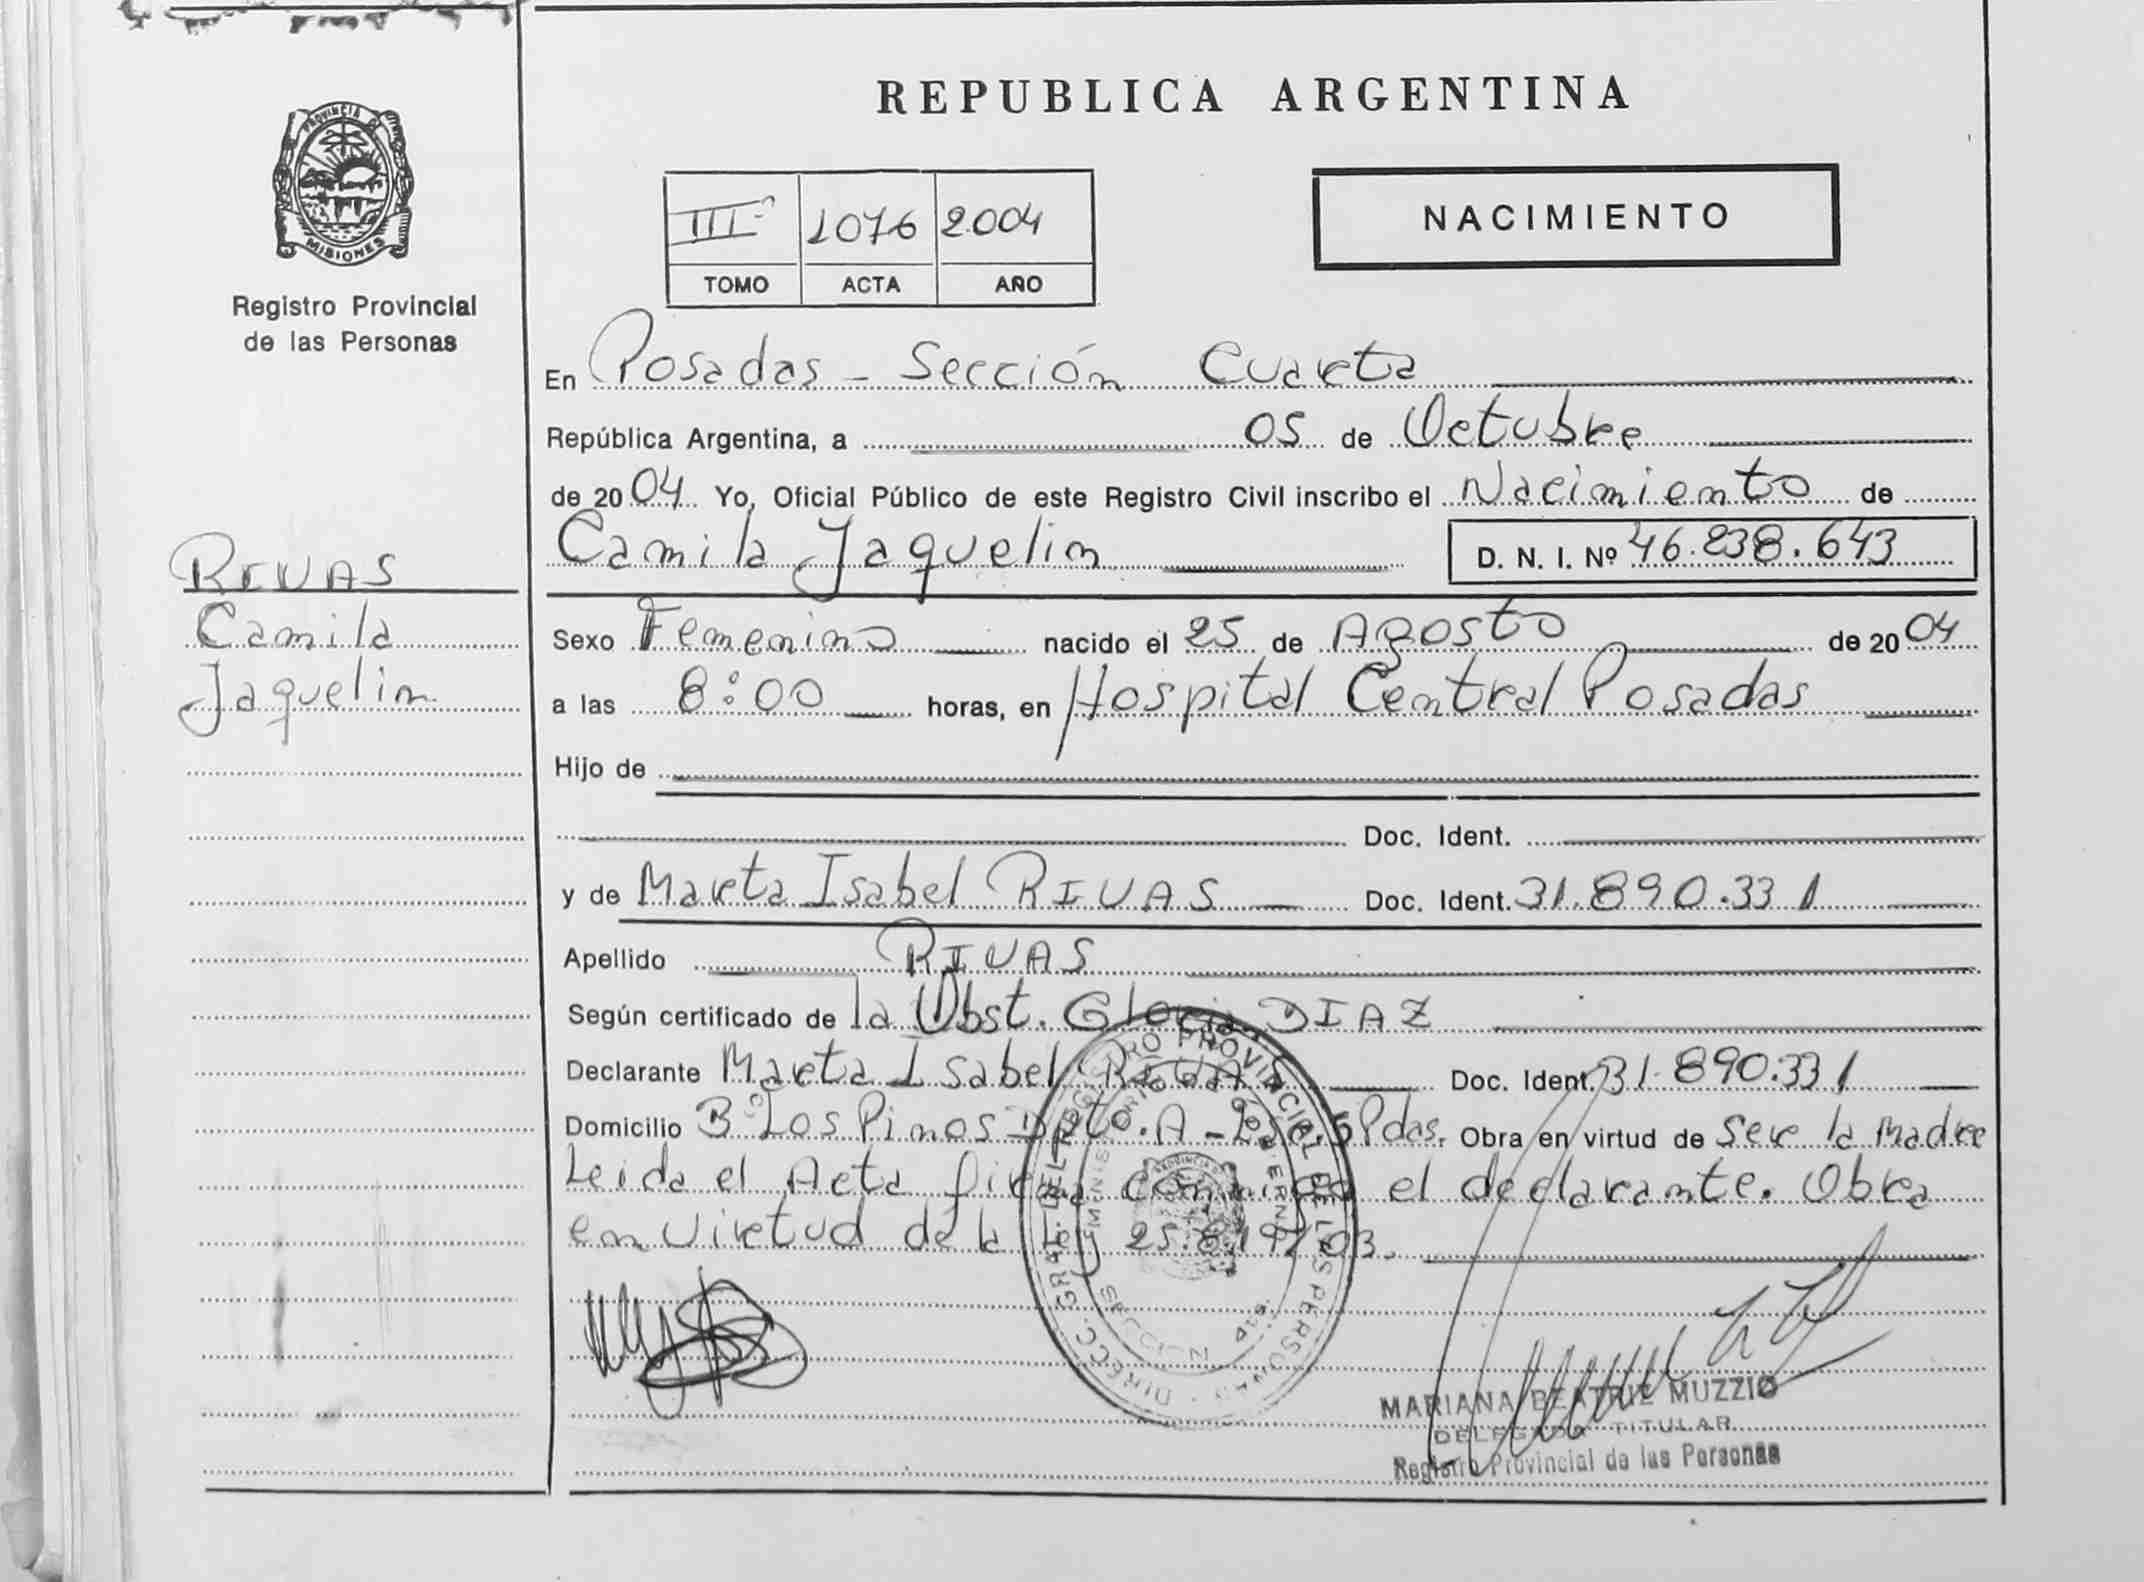 REPUBLICA ARGENTINA
PROVINCIA DE
MISIONES
Registro Provincial
de las Personas
III º 1076 2.004
TOMO ACTA AÑO
NACIMIENTO
En Posadas - Sección Cuarta
República Argentina, a 05 de Octubre
de 2004 Yo, Oficial Público de este Registro Civil inscribo el Nacimiento de
Camila Jaquelin D. N. I. Nº 46.238.643
RIVAS
Camila
Jaquelin
Sexo Femenino nacido el 25 de Agosto de 2004
a las 8:00 horas, en Hospital Central Posadas
Hijo de
Doc. Ident.
y de Marta Isabel RIVAS Doc. Ident. 31.890.331
Apellido RIVAS
Según certificado de la Obst. Gloria DIAZ
Declarante Marta Isabel RIVAS Doc. Ident. 31.890.331
Domicilio Bº Los Pinos Dpto. A - Pdas. Obra en virtud de Ser la Madre
Leida el Acta firma conmigo el declarante. Obra
en virtud de la Ley 25.819/03.
DIRECC. GRAL. DEL REGISTRO PROVINCIAL DE LAS PERSONAS
MINISTERIO DE GOBIERNO
MARIANA BEATRIZ MUZZIO
DELEGADA TITULAR
Registro Provincial de las Personas